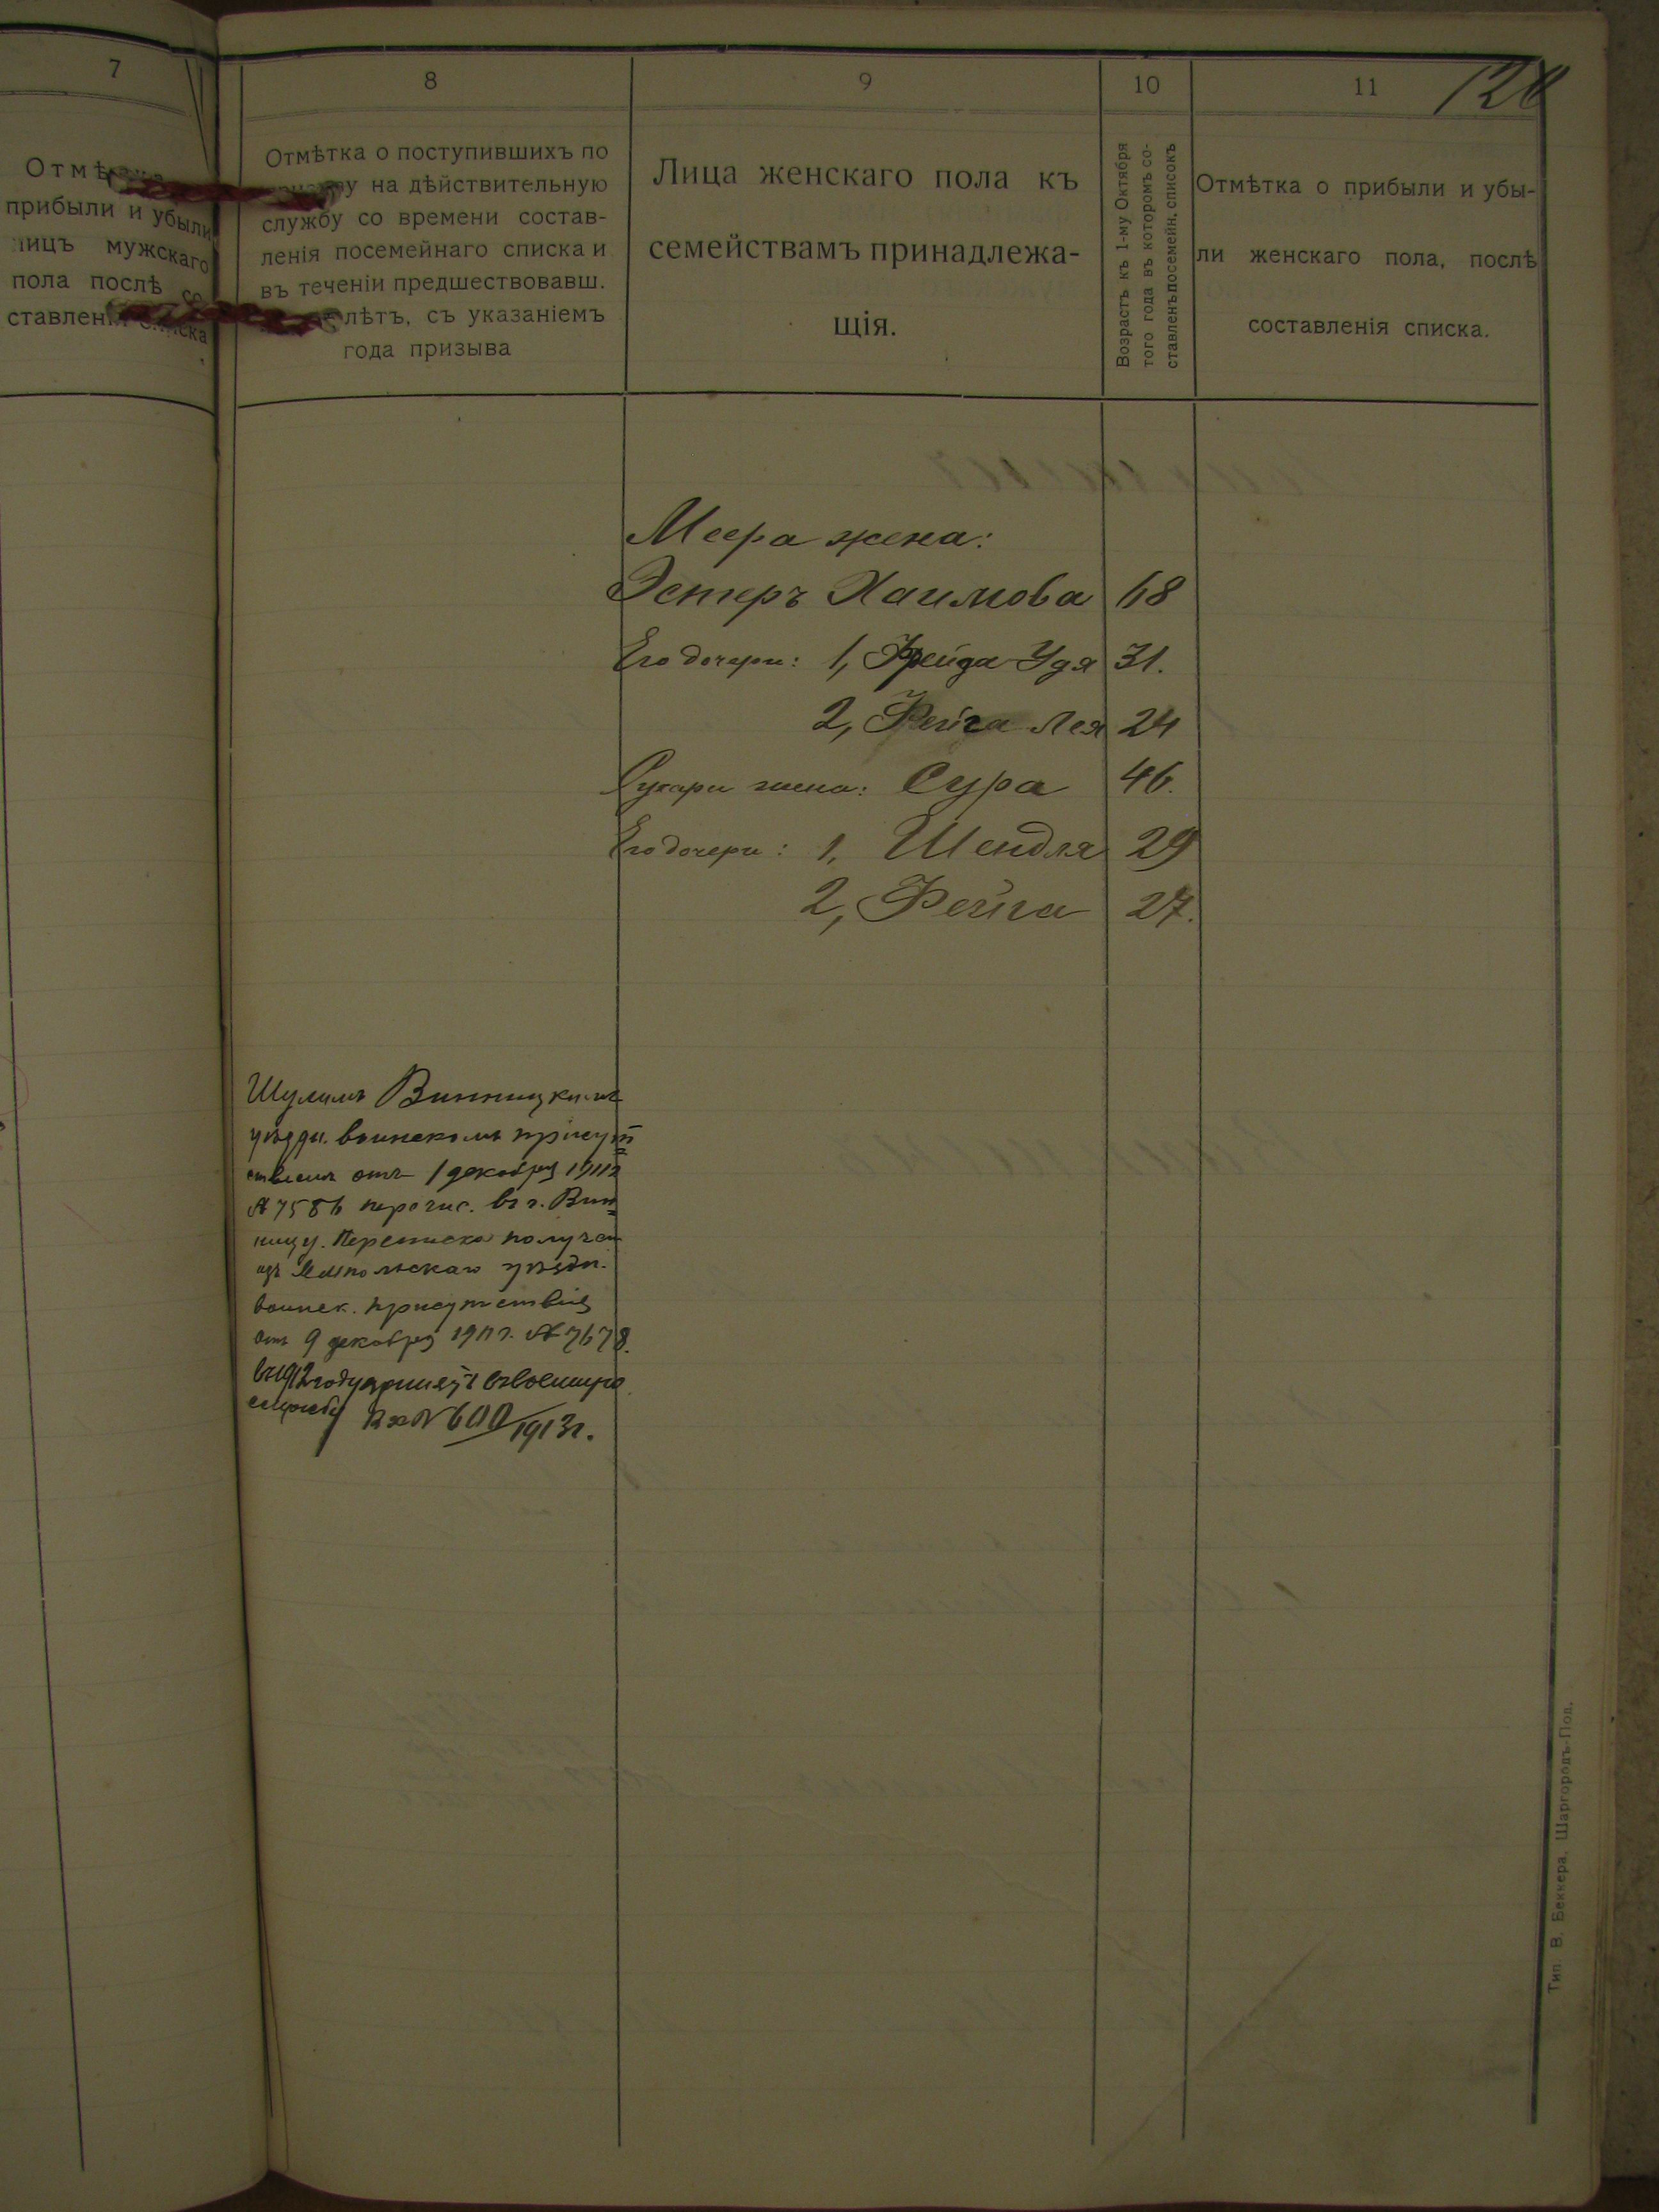 7
прибыли и убыли
лицъ мужскаго
пола послѣ со-
8
Отмѣтка о поступившихъ по
на дѣйствительную
службу со времени состав-
ленія посемейнаго списка и
въ теченіи предшествовавш.
лѣтъ, съ указаніемъ
года призыва
9
Лица женскаго пола къ
семействамъ принадлежа-
щія.
10
Возрастъ къ 1-му Октября
того года въ которомъ со-
ставленъ посемейн. списокъ
11
Отмѣтка о прибыли и убы-
ли женскаго пола, послѣ
составленія списка.
Меера жена:
Эстеръ Хаимова 68
Его дочери: 1, Фрейда Удя 31.
2, Фейга Лея 24
жена: Сура 46.
Его дочери: 1, Шендля 29
2, Фейга 27.
Шулимъ Винницкимъ
уѣздн. воинскимъ присут
ствіемъ отъ 1 декабря 1911г
№ 7586 перечис. въ г. Вин
ницу. Переписка получен
изъ Ямпольскаго уѣздн.
воинск. присутствія
отъ 9 декабря 1911 г. № 7678.
въ 1912 году принятъ въ военную
службу Вх № 600/1913г.
Тип. В. Беккера, Шаргородъ-Под.